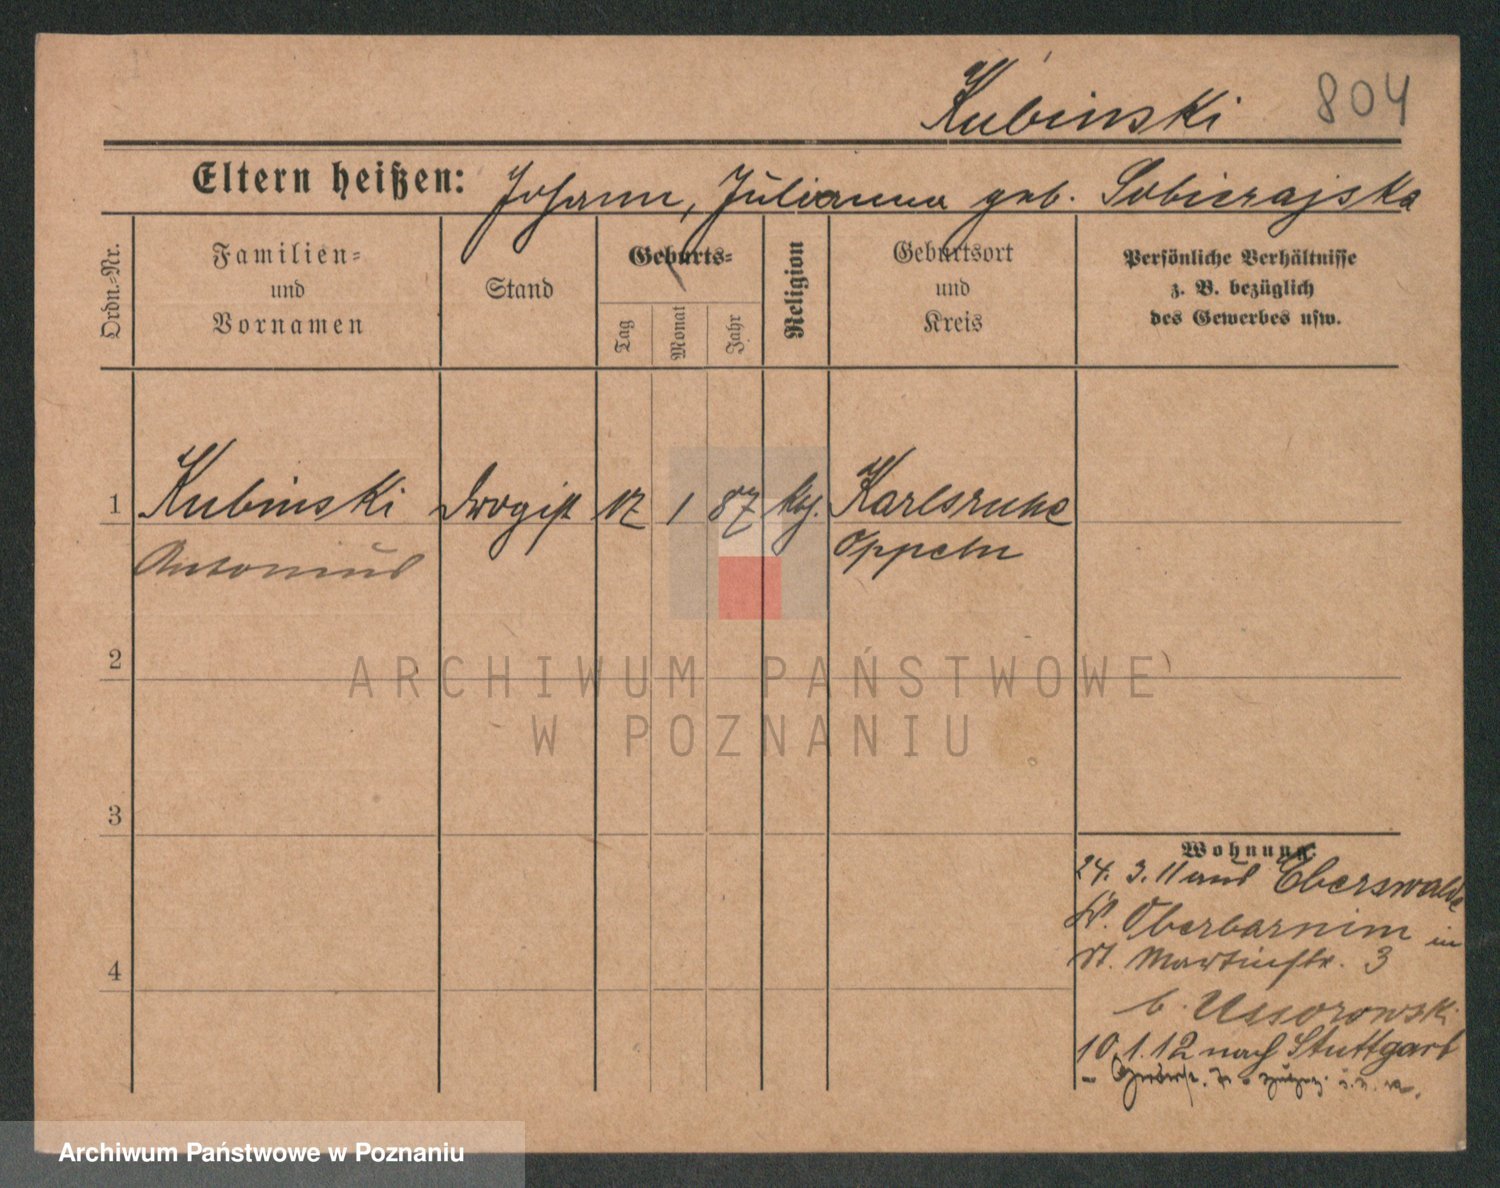 Kubinski 804
Eltern heißen: Johann, Julianna geb. Sobierajska
Ordn.-Nr.
Familien-
und
Vornamen
Stand
Geburts-
Tag
Monat
Jahr
Religion
Geburtsort
und
Kreis
Persönliche Verhältnisse
z. B. bezüglich
des Gewerbes usw.
1 Kubinski Drogist 17 1 87 kath. Karlsruhe
Antonius Oppeln
2
ARCHIWUM PAŃSTWOWE
W POZNANIU
3
Wohnung:
24. 3. 11 aus Eberswalde
Kr. Oberbarnim in
St. Martinstr. 3
b.
10. 1. 12 nach Stuttgart
4
Archiwum Państwowe w Poznaniu